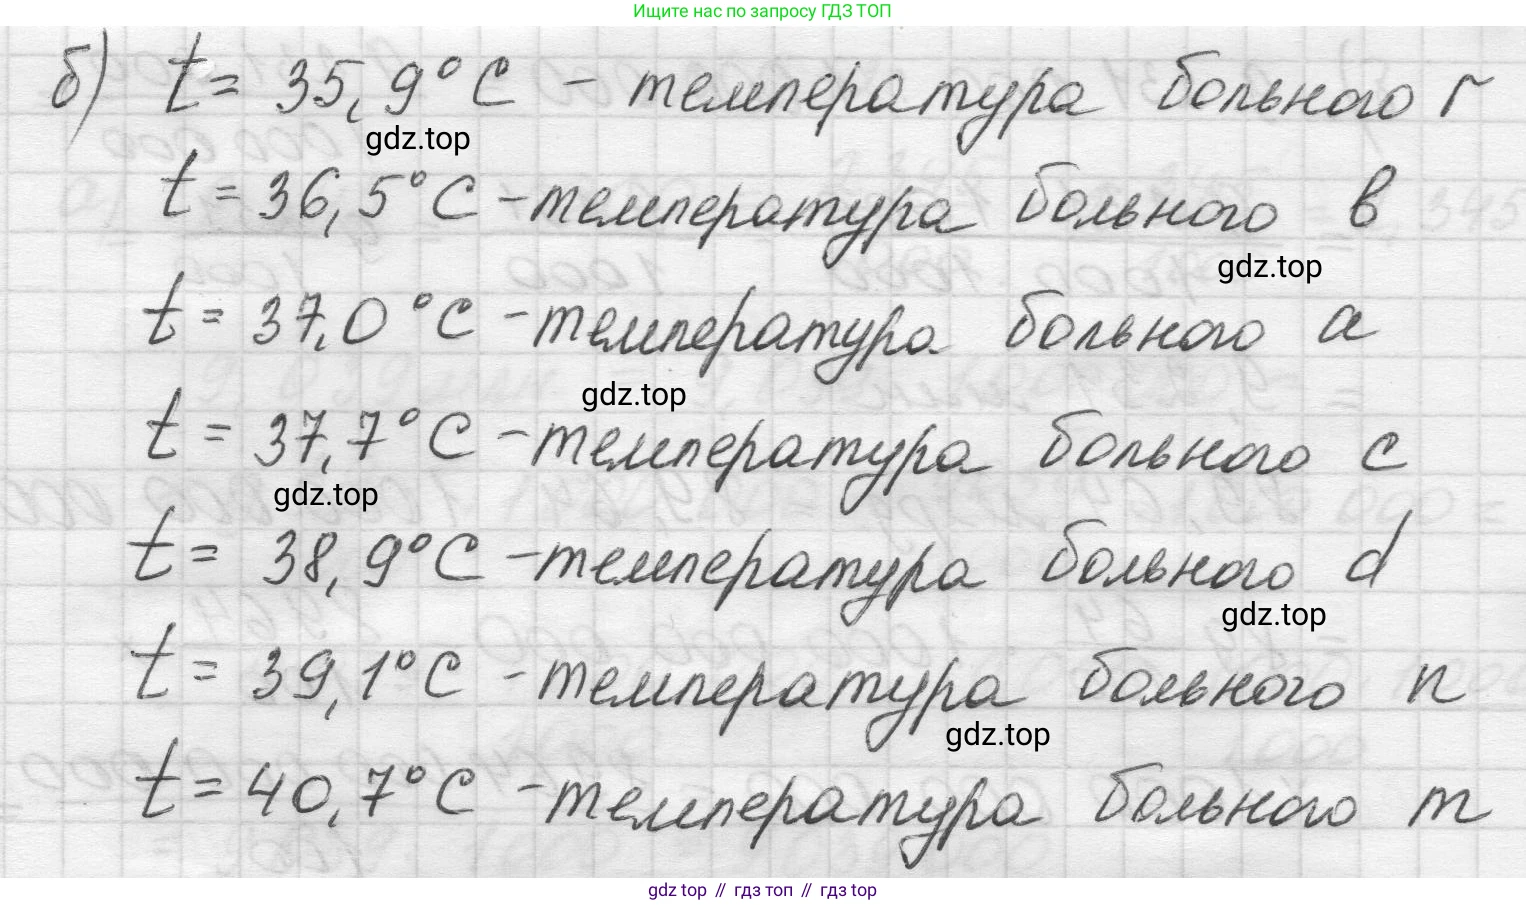 Ищите нас по запросу ГДЗ ТОП
б) t = 35,9°C – температура больного r
gdz.top
t = 36,5°C – температура больного b
gdz.top
t = 37,0°C – температура больного a
gdz.top
t = 37,7°C – температура больного c
gdz.top
t = 38,9°C – температура больного d
gdz.top
t = 39,1°C – температура больного n
gdz.top
t = 40,7°C – температура больного m
gdz top // гдз топ // гдз top